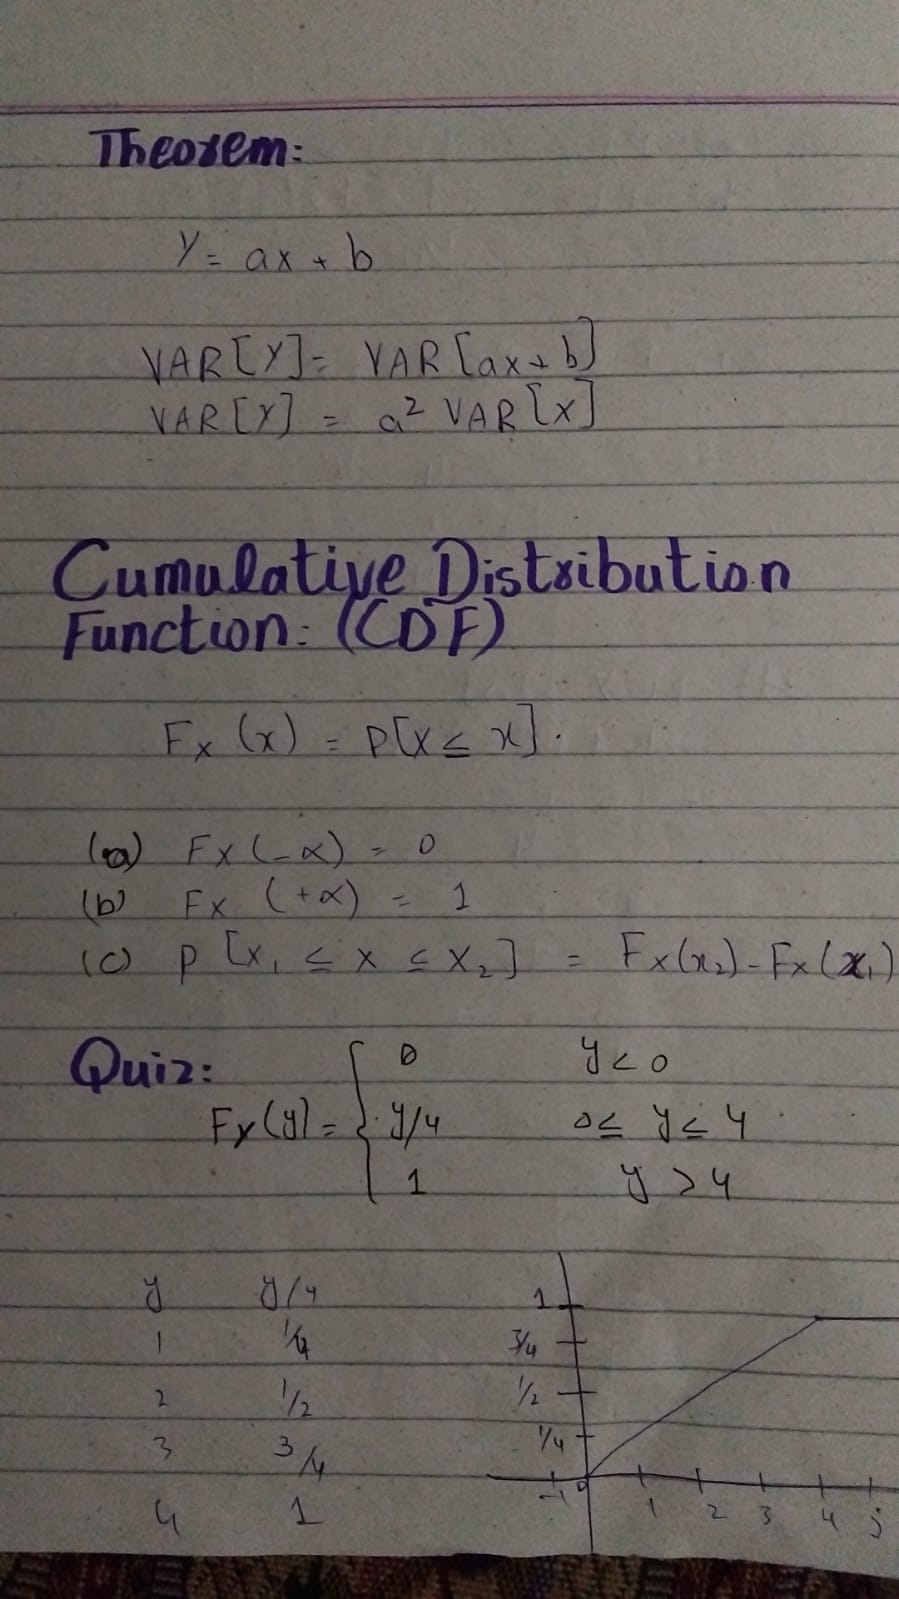 Theorem:
Y = ax + b
VAR[Y] = VAR[ax+b]
VAR[Y] = a² VAR[X]
Cumulative Distribution
Function: (CDF)
Fx (x) = P[X ≤ x].
(a) Fx (-∝) = 0
(b) Fx (+∝) = 1
(c) P [x₁ ≤ x ≤ x₂] = Fx(x₂) - Fx(x₁)
Quiz:
0 y < 0
Fy(y) = { y/4 0 ≤ y ≤ 4
1 y > 4
y y/4
1 1/4
2 1/2
3 3/4
4 1
1
3/4
1/2
1/4
-1 0 1 2 3 4 5